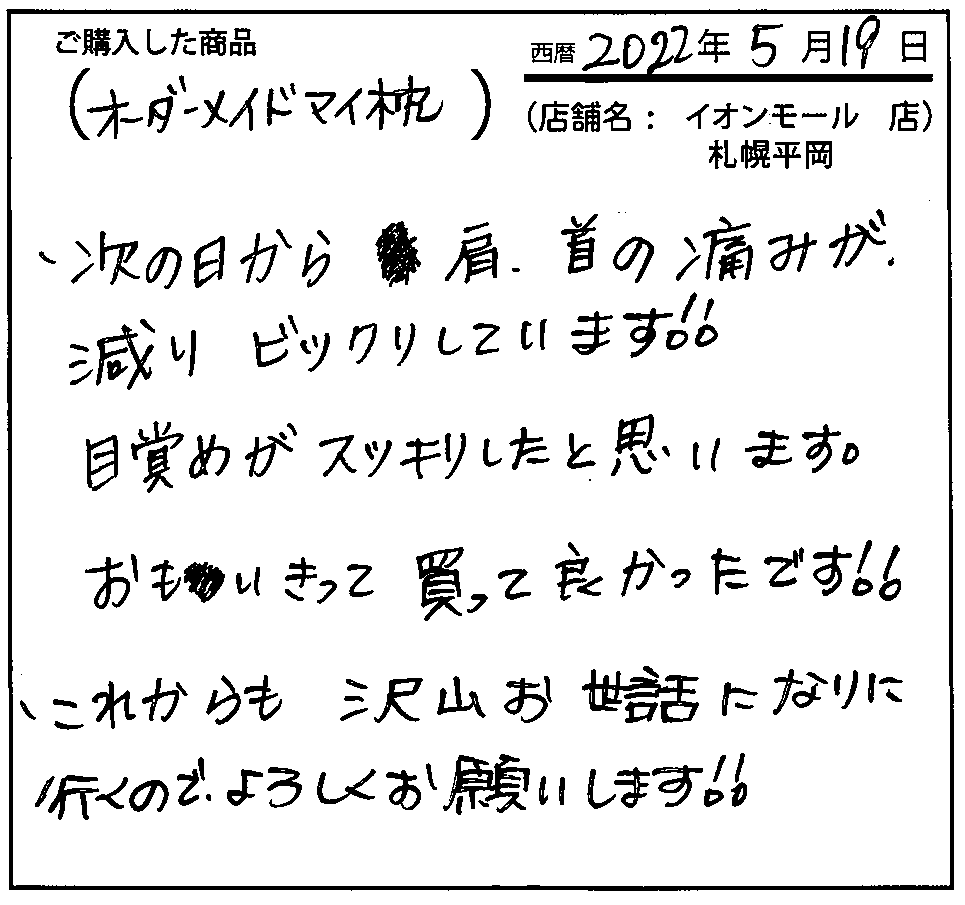 ご購入した商品
西暦 2022年 5月19日
(オーダーメイドマイ枕)
(店舗名： イオンモール 店)
札幌平岡
、次の日から 肩、首の痛みが、
減り ビックリしています!!
目覚めが スッキリしたと思います。
おもいきって 買って良かったです!!
、これからも 沢山お世話になりに
行くので、よろしくお願いします!!